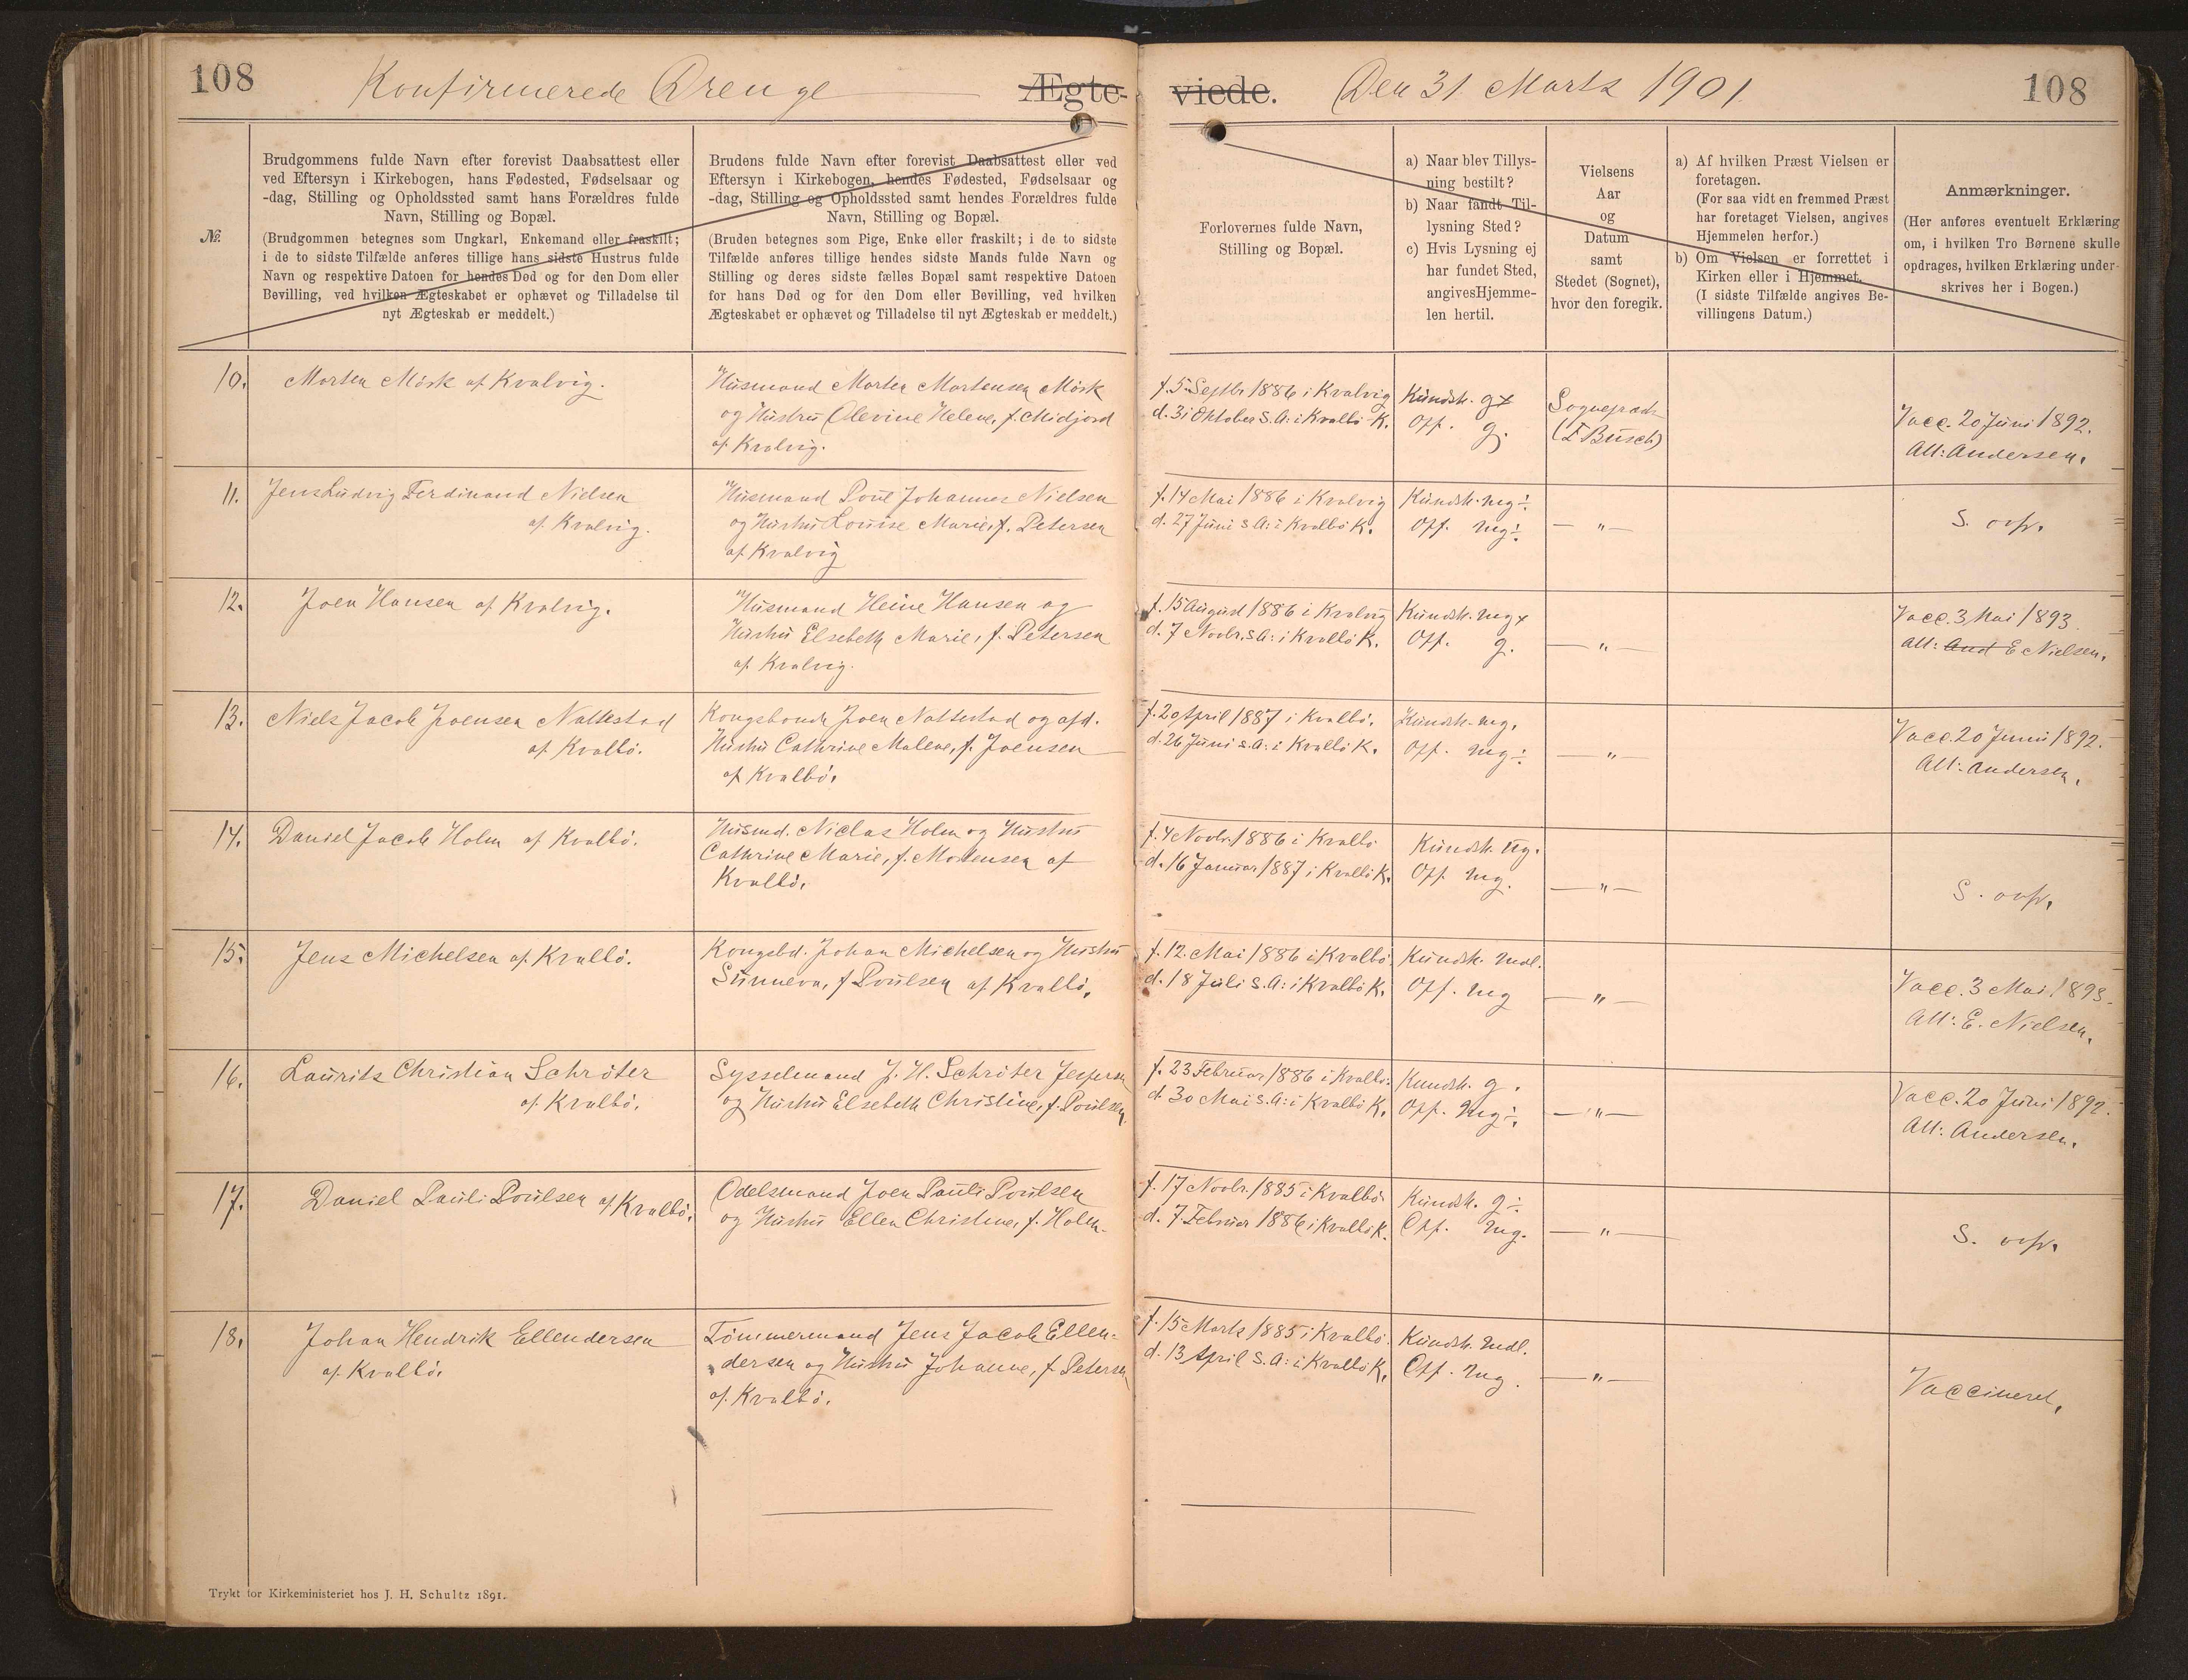 108
Konfirmerede Drenge
Ægte-
viede.
Den 31. Marts 1901.
108
№.
Brudgommens fulde Navn efter forevist Daabsattest eller
ved Eftersyn i Kirkebogen, hans Fødested, Fødselsaar og
-dag, Stilling og Opholdssted samt hans Forældres fulde
Navn, Stilling og Bopæl.
(Brudgommen betegnes som Ungkarl, Enkemand eller fraskilt;
i de to sidste Tilfælde anføres tillige hans sidste Hustrus fulde
Navn og respektive Datoen for hendes Død og for den Dom eller
Bevilling, ved hvilken Ægteskabet er ophævet og Tilladelse til
nyt Ægteskab er meddelt.)
Brudens fulde Navn efter forevist Daabsattest eller ved
Eftersyn i Kirkebogen, hendes Fødested, Fødselsaar og
-dag, Stilling og Opholdssted samt hendes Forældres fulde
Navn, Stilling og Bopæl.
(Bruden betegnes som Pige, Enke eller fraskilt; i de to sidste
Tilfælde anføres tillige hendes sidste Mands fulde Navn og
Stilling og deres sidste fælles Bopæl samt respektive Datoen
for hans Død og for den Dom eller Bevilling, ved hvilken
Ægteskabet er ophævet og Tilladelse til nyt Ægteskab er meddelt.)
Forlovernes fulde Navn,
Stilling og Bopæl.
a) Naar blev Tillys-
ning bestilt?
b) Naar fandt Til-
lysning Sted?
c) Hvis Lysning ej
har fundet Sted,
angivesHjemme-
len hertil.
Vielsens
Aar
og
Datum
samt
Stedet (Sognet),
hvor den foregik.
a) Af hvilken Præst Vielsen er
foretagen.
(For saa vidt en fremmed Præst
har foretaget Vielsen, angives
Hjemmelen herfor.)
b) Om Vielsen er forrettet i
Kirken eller i Hjemmet.
(I sidste Tilfælde angives Be-
villingens Datum.)
Anmærkninger.
(Her anføres eventuelt Erklæring
om, i hvilken Tro Børnene skulle
opdrages, hvilken Erklæring under-
skrives her i Bogen.)
10. Morten Mörk af Kvalvig.
Husmand Morten Mortensen Mörk
og Hustru Olevine Helene, f. Midjord
af Kvalvig.
f. 5 Septbr 1886 i Kvalvig
d. 31 Oktober S. A: i Kvalbö K.
Kundsk. g×
Opf. g.
Sognepræst
(F Busch)
Vacc. 20 Juni 1892.
Att: Andersen.
11. Jens Ludvig Ferdinand Nielsen
af Kvalvig.
Husmand Poul Johannes Nielsen
og Hustru Louise Marie, f. Petersen
af Kvalvig
f. 14 Mai 1886 i Kvalvig
d. 27 Juni S. A: i Kvalbö K.
Kundsk. mg÷
Opf. mg÷
— " —
S. ovfr.
12. Joen Hansen af Kvalvig.
Husmand Heine Hansen og
Hustru Elsebeth Marie, f. Petersen
af Kvalvig.
f. 15 August 1886 i Kvalvig
d. 7 Novbr. S A: i Kvalbö K.
Kundsk. mg×
Opf. g.
— " —
Vacc. 3 Mai 1893.
Att: And E Nielsen.
13. Niels Jacob Joensen Nattestad
af Kvalbö.
Kongsbonde Joen Nattestad og afd.
Hustru Cathrine Malene, f. Joensen
af Kvalbö.
f. 20 April 1887 i Kvalbö.
d. 26 Juni S. A: i Kvalbö K.
Kundsk. mg.
Opf. mg÷
— " —
Vacc. 20 Juni 1892.
Att: Andersen.
14. Daniel Jacob Holm af Kvalbö.
Husmd. Niclas Holm og Hustru
Cathrine Marie, f. Mortensen af
Kvalbö.
f. 4 Novbr. 1886 i Kvalbö
d. 16 Januar 1887 i Kvalbö K.
Kundsk. ug.
Opf. mg.
— " —
S. ovfr.
15. Jens Michelsen af Kvalbö.
Kongsbd. Johan Michelsen og Hustru
Sunneva, f Poulsen af Kvalbö.
f. 12. Mai 1886 i Kvalbö.
d. 18 Juli S. A: i Kvalbö K.
Kundsk. mdl.
Opf. mg
— " —
Vacc. 3 Mai 1893.
Att: E. Nielsen.
16. Laurits Christian Schröter
af Kvalbö.
Sysselmand J. H. Schröter Jespersen
og Hustru Elsebeth Christine, f. Poulsen.
f. 23 Februar 1886 i Kvalbö.
d. 30 Mai S. A: i Kvalbö K.
Kundsk. g.
Opf. mg÷.
— " —
Vacc. 20 Juni 1892.
Att: Andersen.
17. Daniel Pauli Poulsen af Kvalbö.
Odelsmand Joen Pauli Poulsen
og Hustru Ellen Christine, f. Holm.
f. 17 Novbr. 1885 i Kvalbö
d. 7 Februar 1886 i Kvalbö K.
Kundsk. g÷
Opf. mg.
— " —
S. ovfr.
18. Johan Hendrik Ellendersen
af Kvalbö.
Tömmermand Jens Jacob Ellen-
dersen og Hustru Johanne, f. Petersen
af Kvalbö.
f. 15 Marts 1885 i Kvalbö.
d. 13 April S. A: i Kvalbö K.
Kundsk. mdl.
Opf. mg.
— " —
Vaccineret.
Trykt for Kirkeministeriet hos J. H. Schultz 1891.